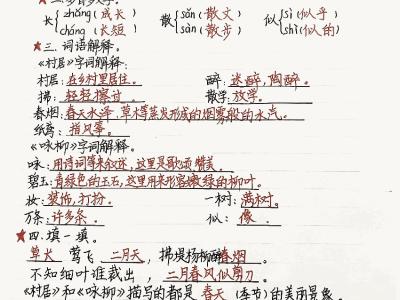 长 { zhǎng（成长） cháng（长短） 散 { sǎn（散文） sàn（散步） 似 { sì（似乎） shì（似的）
★三、词语解释。
《村居》字词解释:
村居: 在乡村里居住。 醉: 迷醉,陶醉。
拂: 轻轻擦过。 散学: 放学。
春烟: 春天水泽、草木等蒸发形成的烟雾般的水汽。
纸鸢: 指风筝。
《咏柳》字词解释。
咏: 用诗词等来叙述,这里是歌颂、赞美。
碧玉: 青绿色的玉石,这里用来形容嫩绿的柳叶。
妆: 装饰,打扮。 一树: 满树。
万条: 许多条。 似: 像。
★四、填一填。
草长 莺飞 二月天 ,拂堤杨柳醉春烟。
不知细叶谁裁出 ,二月春风似剪刀。
《村居》和《咏柳》描写的都是 春天 (季节)的美丽景象。